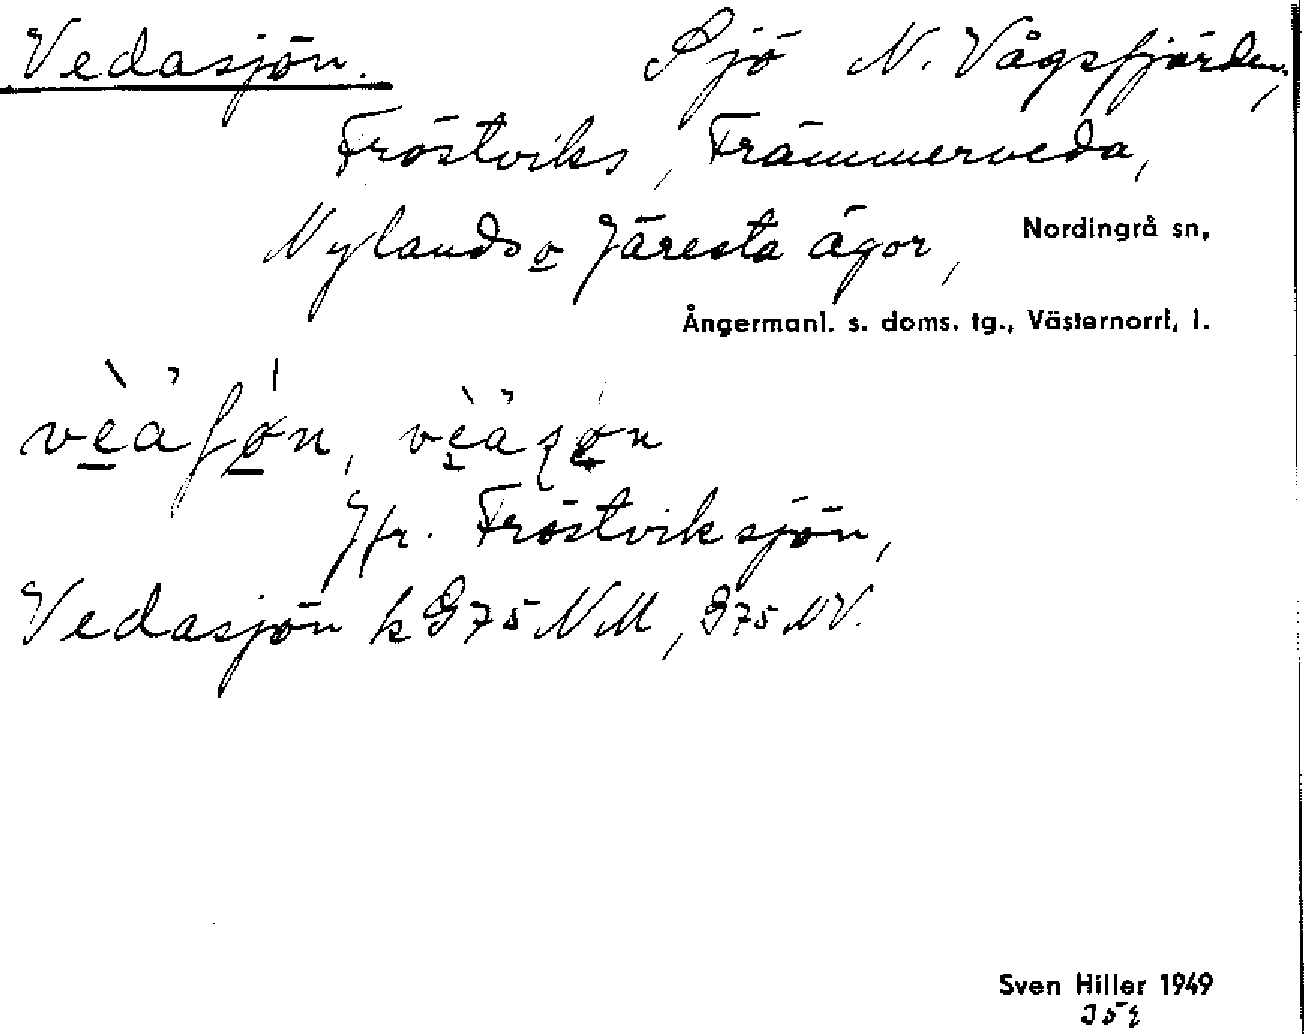 Vedasjön. Sjö N. Vågsfjärden,
Fröstviks, Främmerveda,
Nylands o Järesta ägor, Nordingrå sn,
Ångermanl. s. doms. tg., Västernorrl, l.
Jfr. Fröstviksjön,
Vedasjön k G75 NM, G75 NV.
Sven Hiller 1949